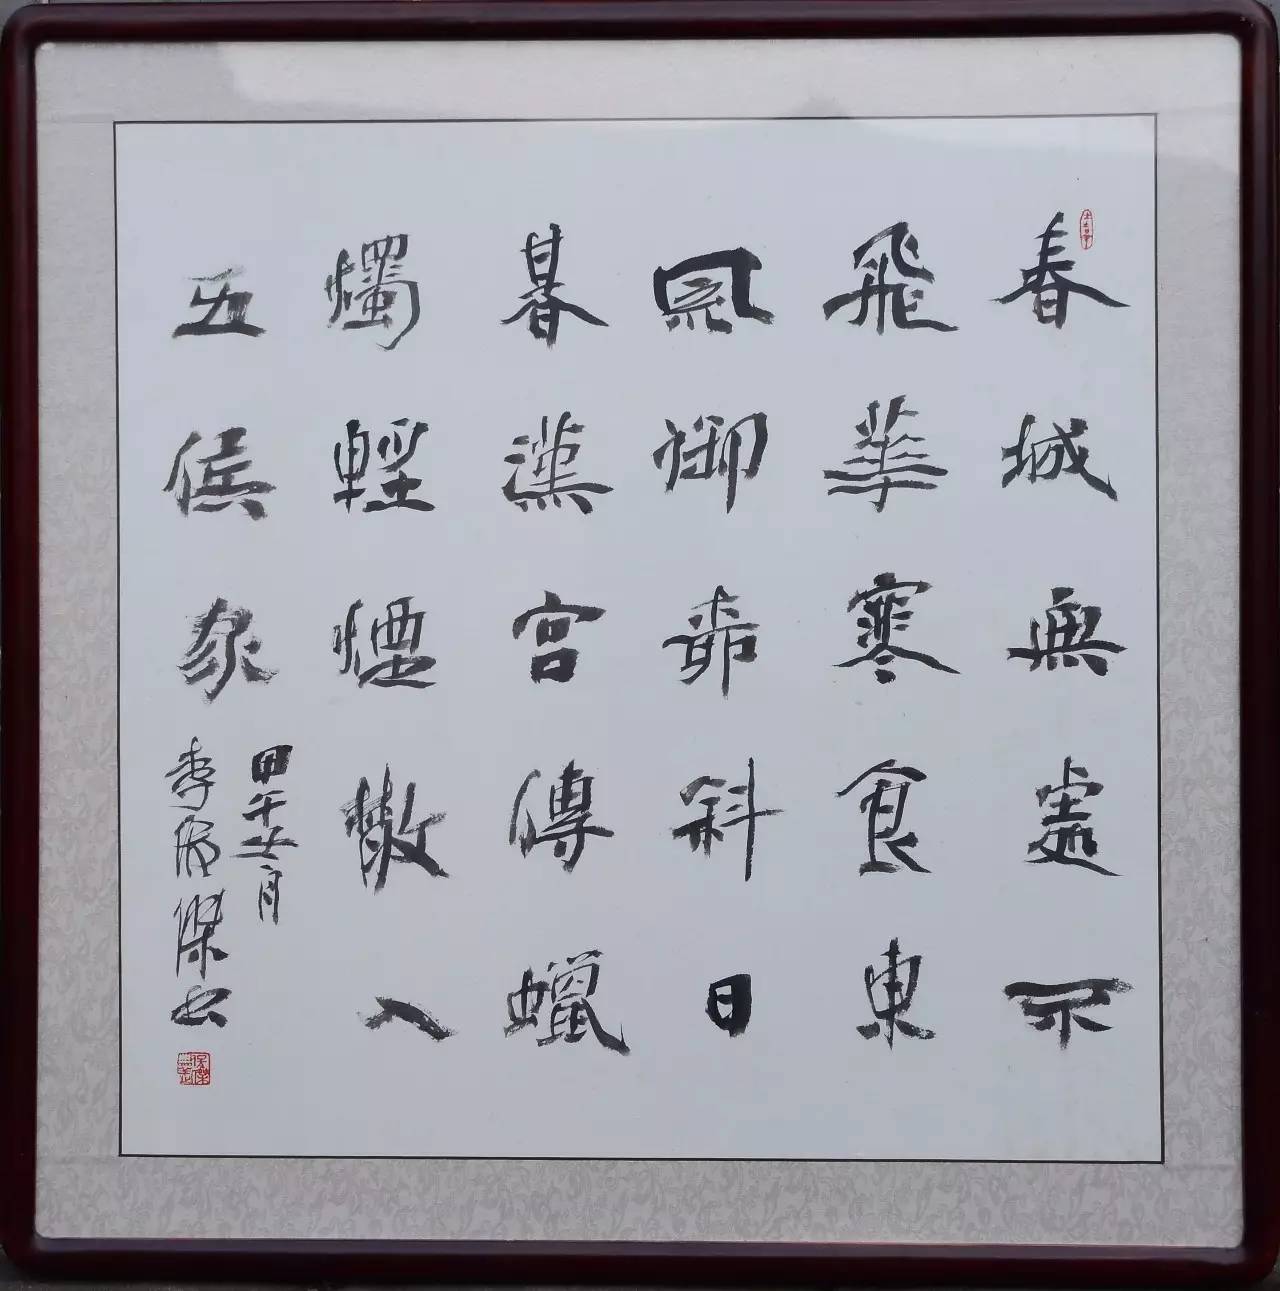 春城無處不
飛華寒食東
風御柳斜日
暮漢宮傳蠟
燭輕煙散入
五侯家
甲午月
李傑书